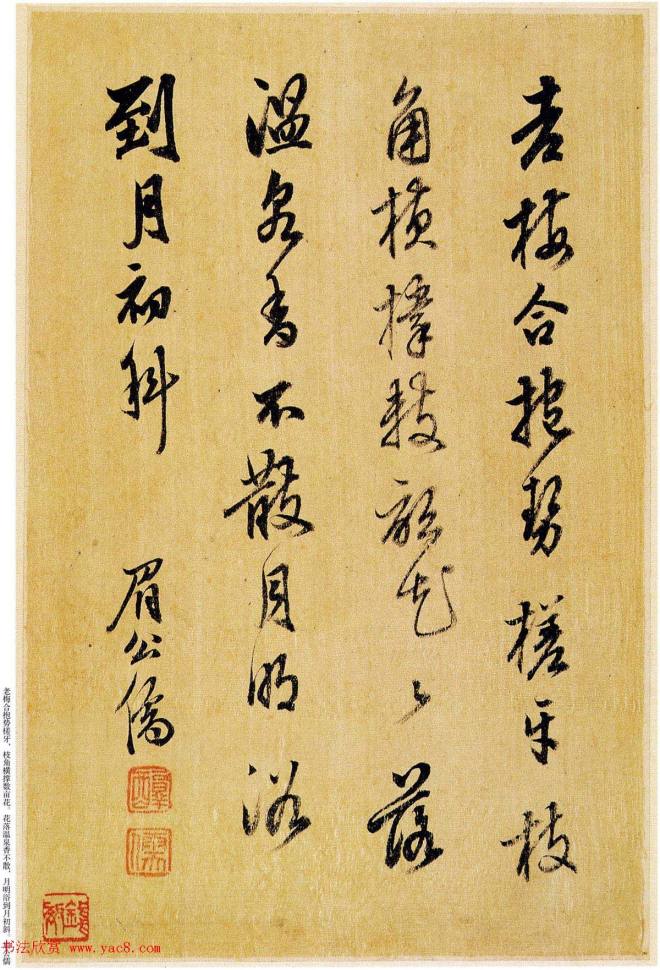 老梅合抱勢槎牙枝
角橫撐數畝花〻落
溫泉香不散月明浴
到月初斜 眉公儒
老梅合抱势槎牙，枝角横撑数亩花。花落温泉香不散，月明浴到月初斜。
书法欣赏 www.yac8.com